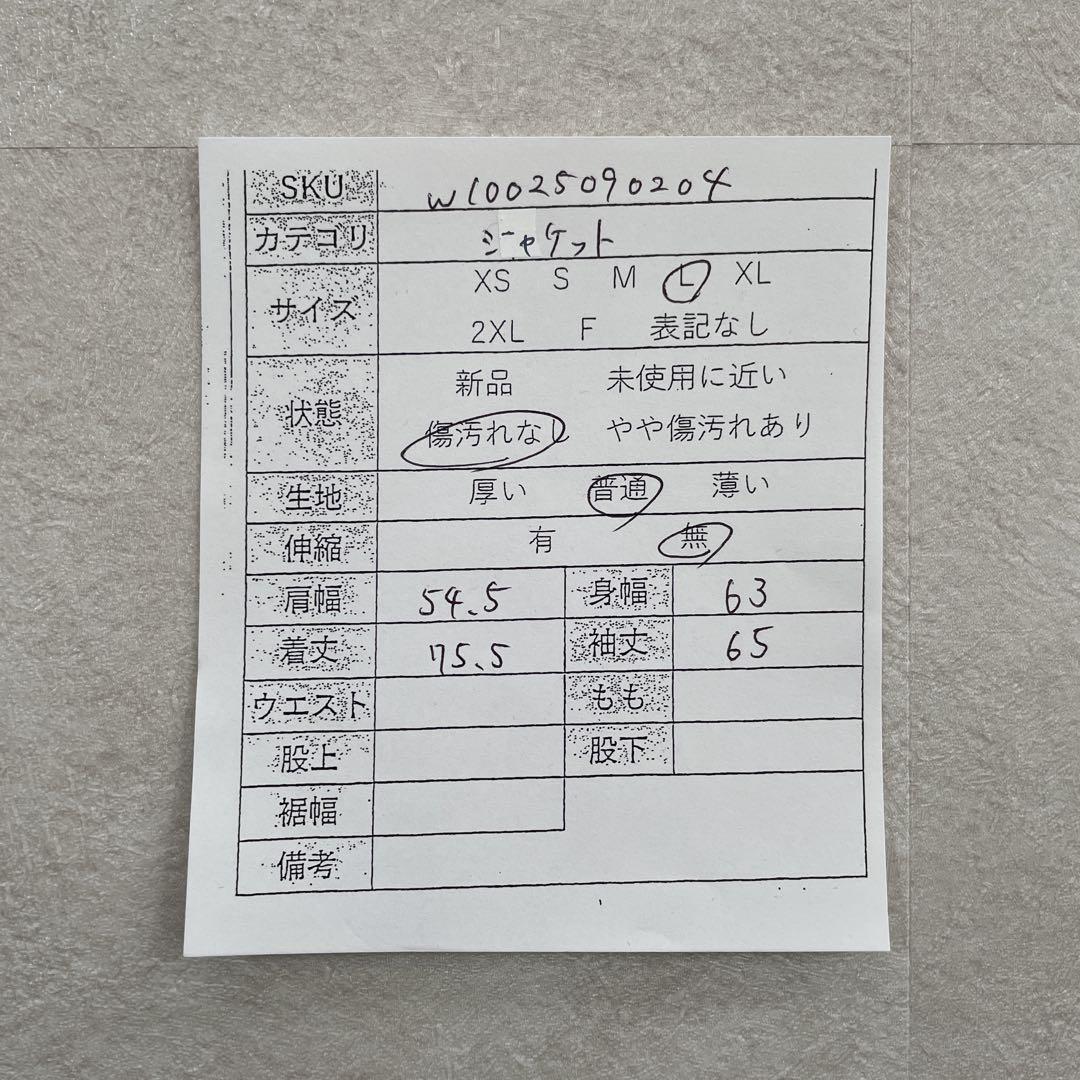 SKU W10025090204
カテゴリ ジャケット
サイズ XS S M L XL
2XL F 表記なし
状態 新品 未使用に近い
傷汚れなし やや傷汚れあり
生地 厚い 普通 薄い
伸縮 有 無
肩幅 54.5 身幅 63
着丈 75.5 袖丈 65
ウエスト もも
股上 股下
裾幅
備考